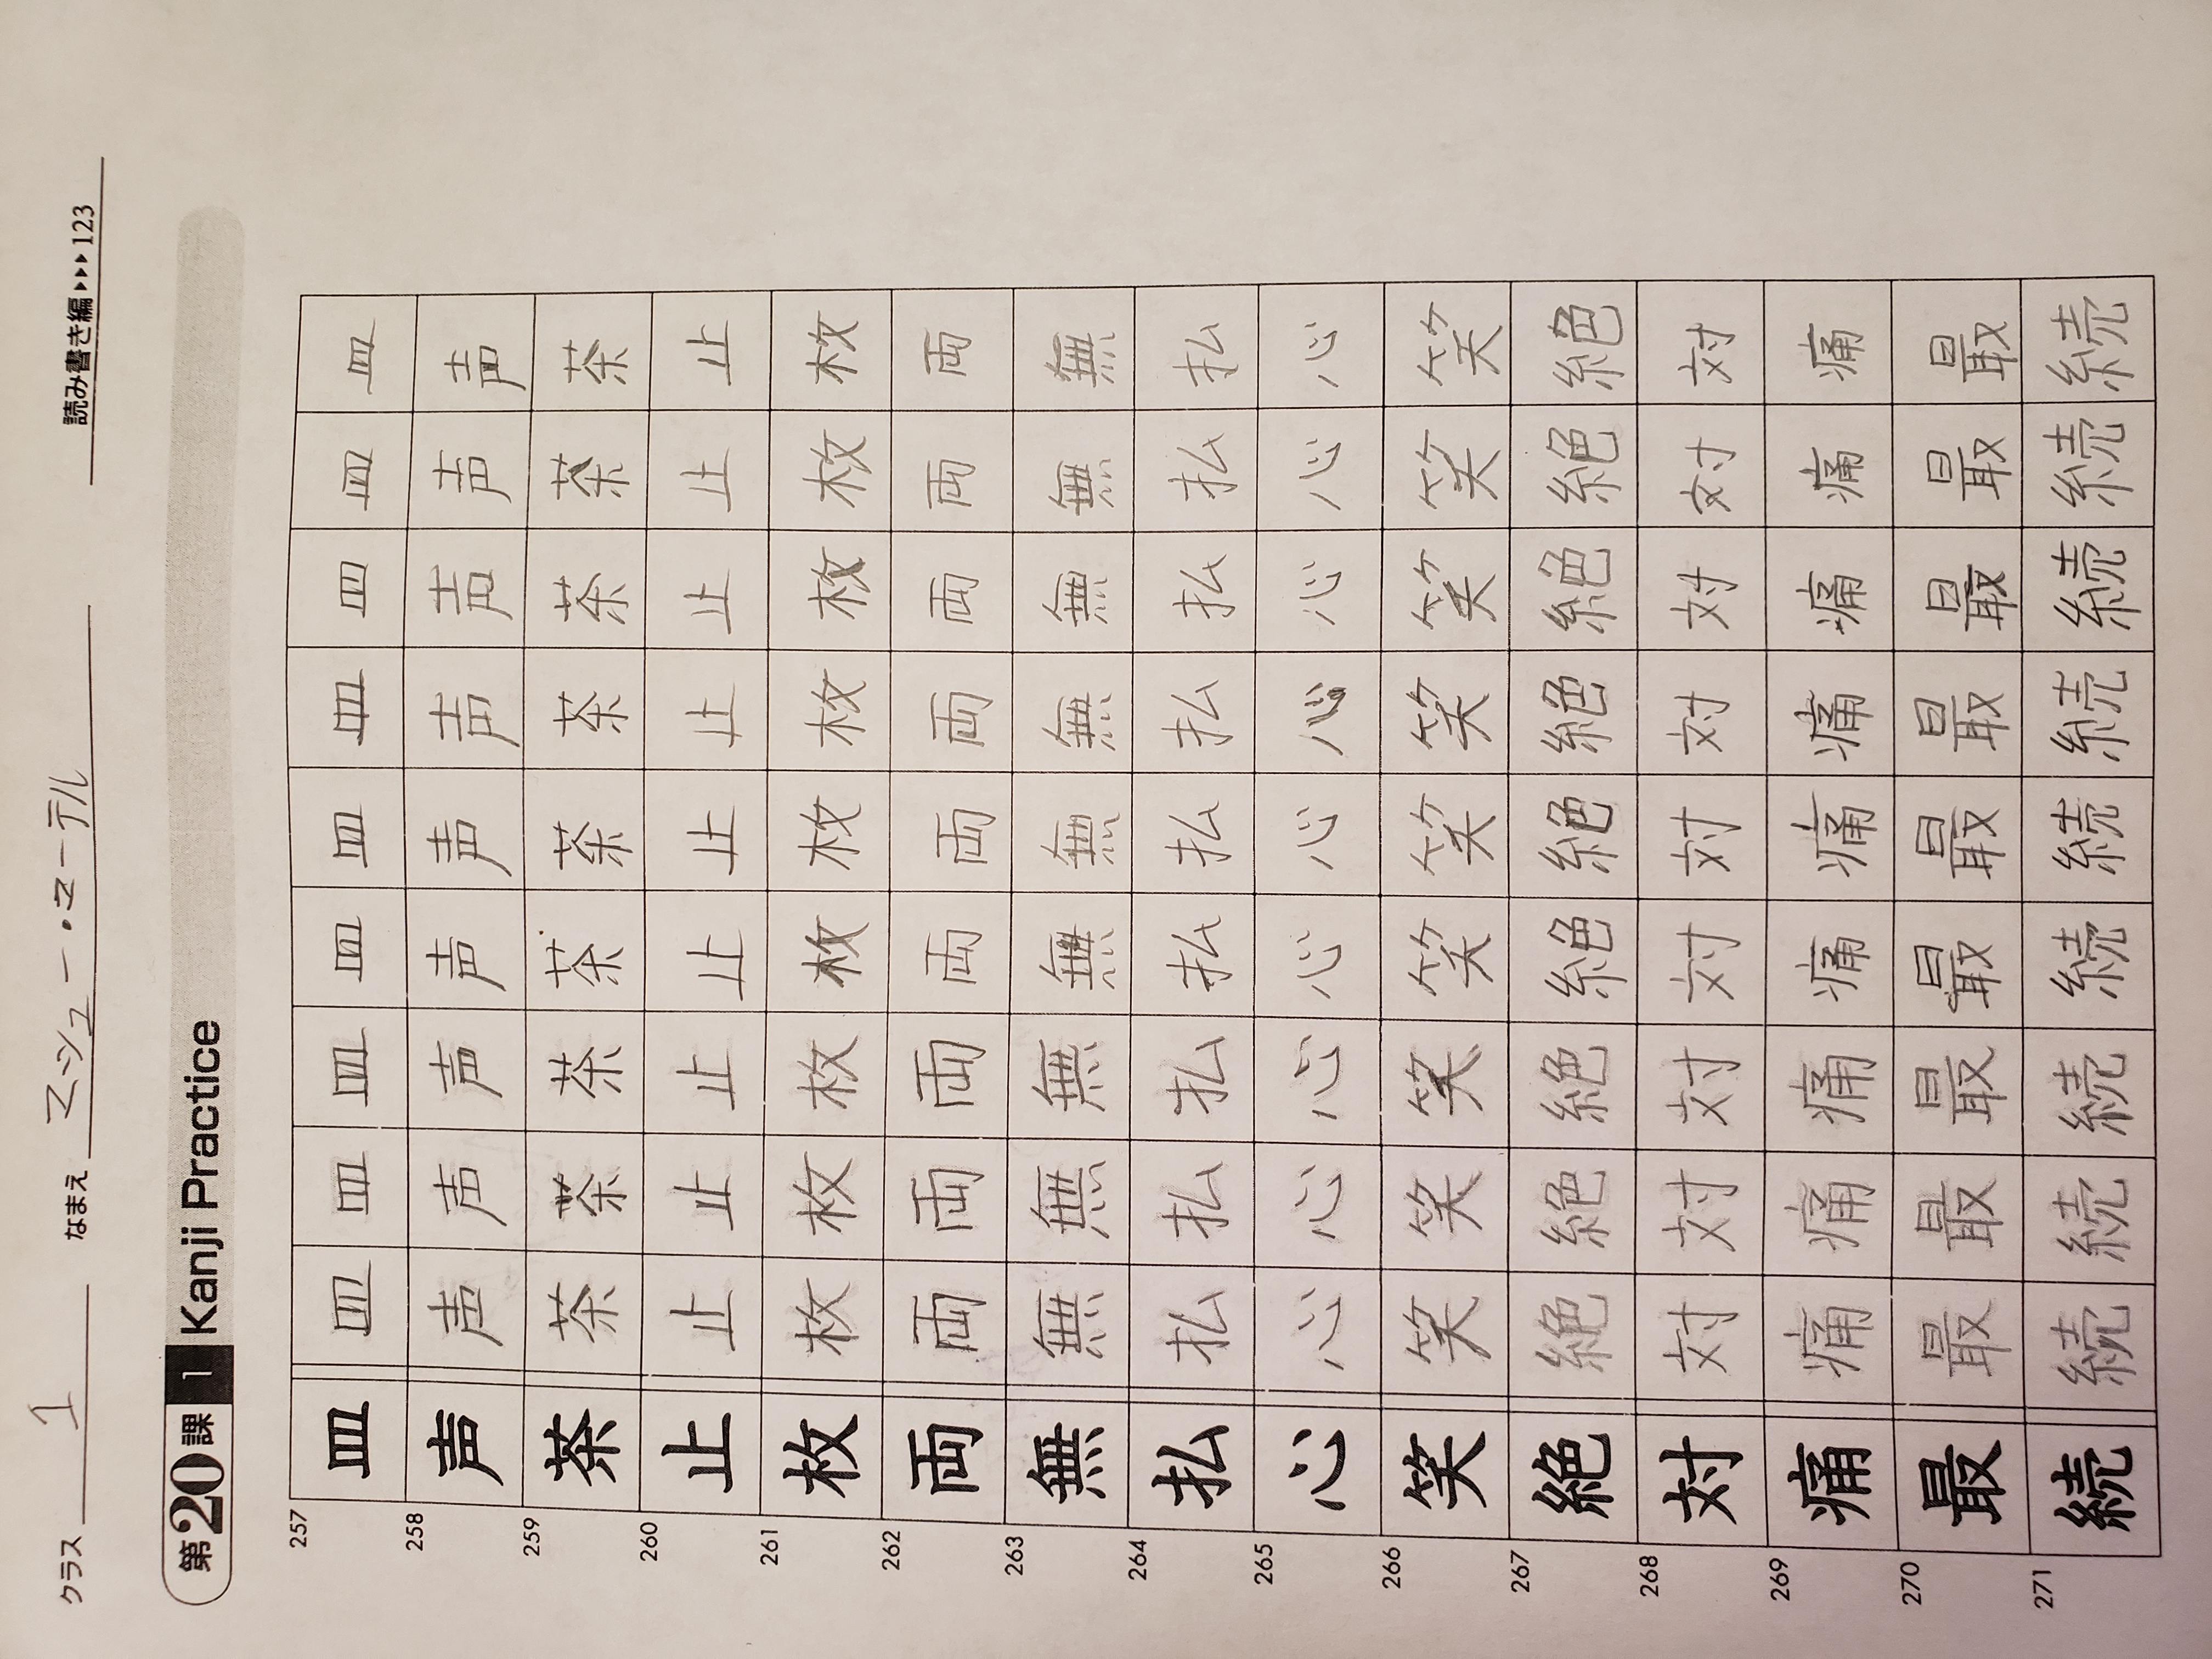 クラス 1 なまえ マシュー・ローテル 読み書き編▸▸▸123
第20課 1 Kanji Practice
257 皿 皿 皿 皿 皿 皿 皿 皿 皿 皿
258 声 声 声 声 声 声 声 声 声 声
259 茶 茶 茶 茶 茶 茶 茶 茶 茶 茶
260 止 止 止 止 止 止 止 止 止 止
261 枚 枚 枚 枚 枚 枚 枚 枚 枚 枚
262 両 両 両 両 両 両 両 両 両 両
263 無 無 無 無 無 無 無 無 無 無
264 払 払 払 払 払 払 払 払 払 払
265 心 心 心 心 心 心 心 心 心 心
266 笑 笑 笑 笑 笑 笑 笑 笑 笑 笑
267 絶 絶 絶 絶 絶 絶 絶 絶 絶 絶
268 対 対 対 対 対 対 対 対 対 対
269 痛 痛 痛 痛 痛 痛 痛 痛 痛 痛
270 最 最 最 最 最 最 最 最 最 最
271 続 続 続 続 続 続 続 続 続 続